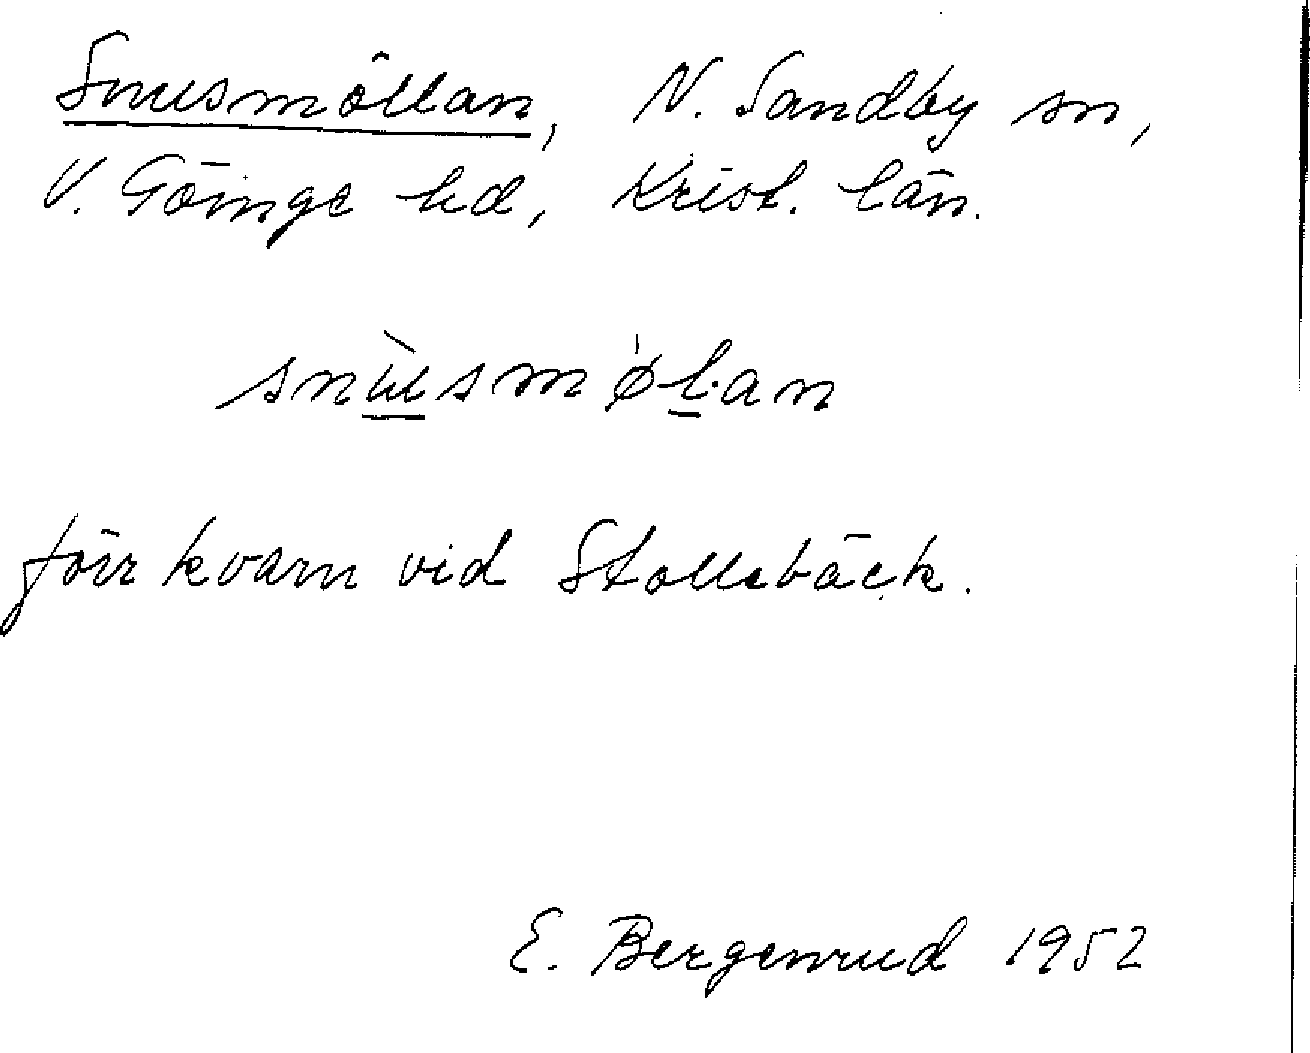 Snusmöllan, N. Sandby sn,
V. Göinge hd, Krist. län.
snùsmø̍l·an
förr kvarn vid Stollebäck.
E. Bergenrud 1952